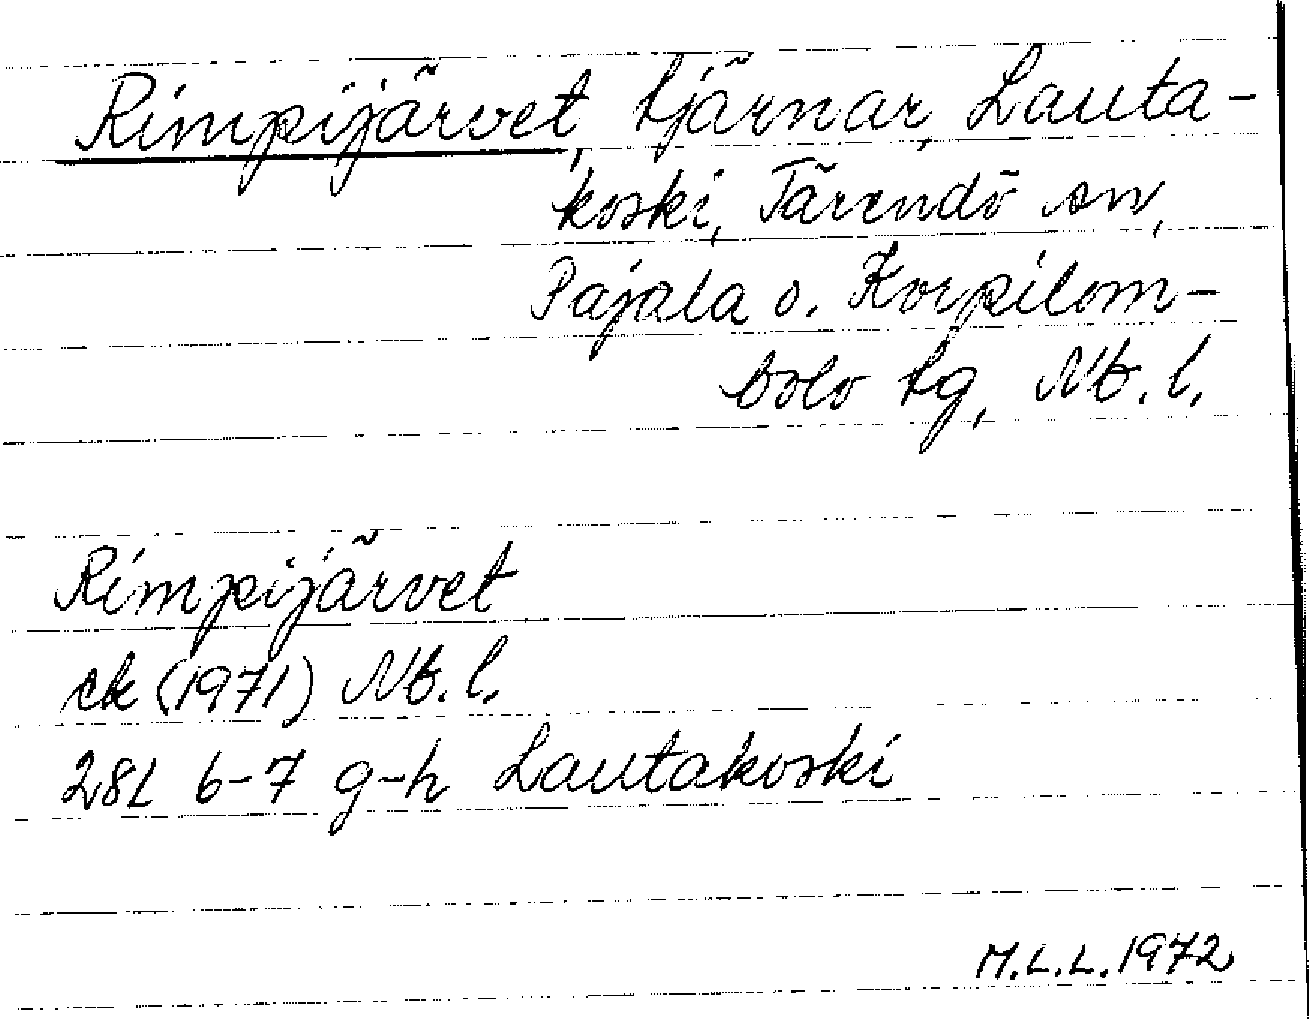 Rimpijärvet, tjärnar, Lauta-
koski, Tärendö sn,
Pajala o. Korpilom-
bolo tg, Nb. l.
Rimpijärvet
ek (1971) Nb. l.
28L 6-7 g-h Lautakoski
M.L.L. 1972